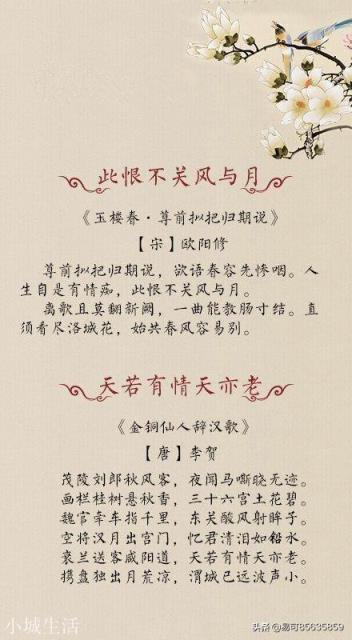 此恨不关风与月
《玉楼春·尊前拟把归期说》
【宋】欧阳修
尊前拟把归期说，欲语春容先惨咽。人
生自是有情痴，此恨不关风与月。
离歌且莫翻新阕，一曲能教肠寸结。直
须看尽洛城花，始共春风容易别。
天若有情天亦老
《金铜仙人辞汉歌》
【唐】李贺
茂陵刘郎秋风客，夜闻马嘶晓无迹。
画栏桂树悬秋香，三十六宫土花碧。
魏官牵车指千里，东关酸风射眸子。
空将汉月出宫门，忆君清泪如铅水。
衰兰送客咸阳道，天若有情天亦老。
携盘独出月荒凉，渭城已远波声小。
小城生活
头条@易可85635859